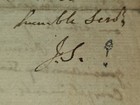 humble Servt.
J. S.